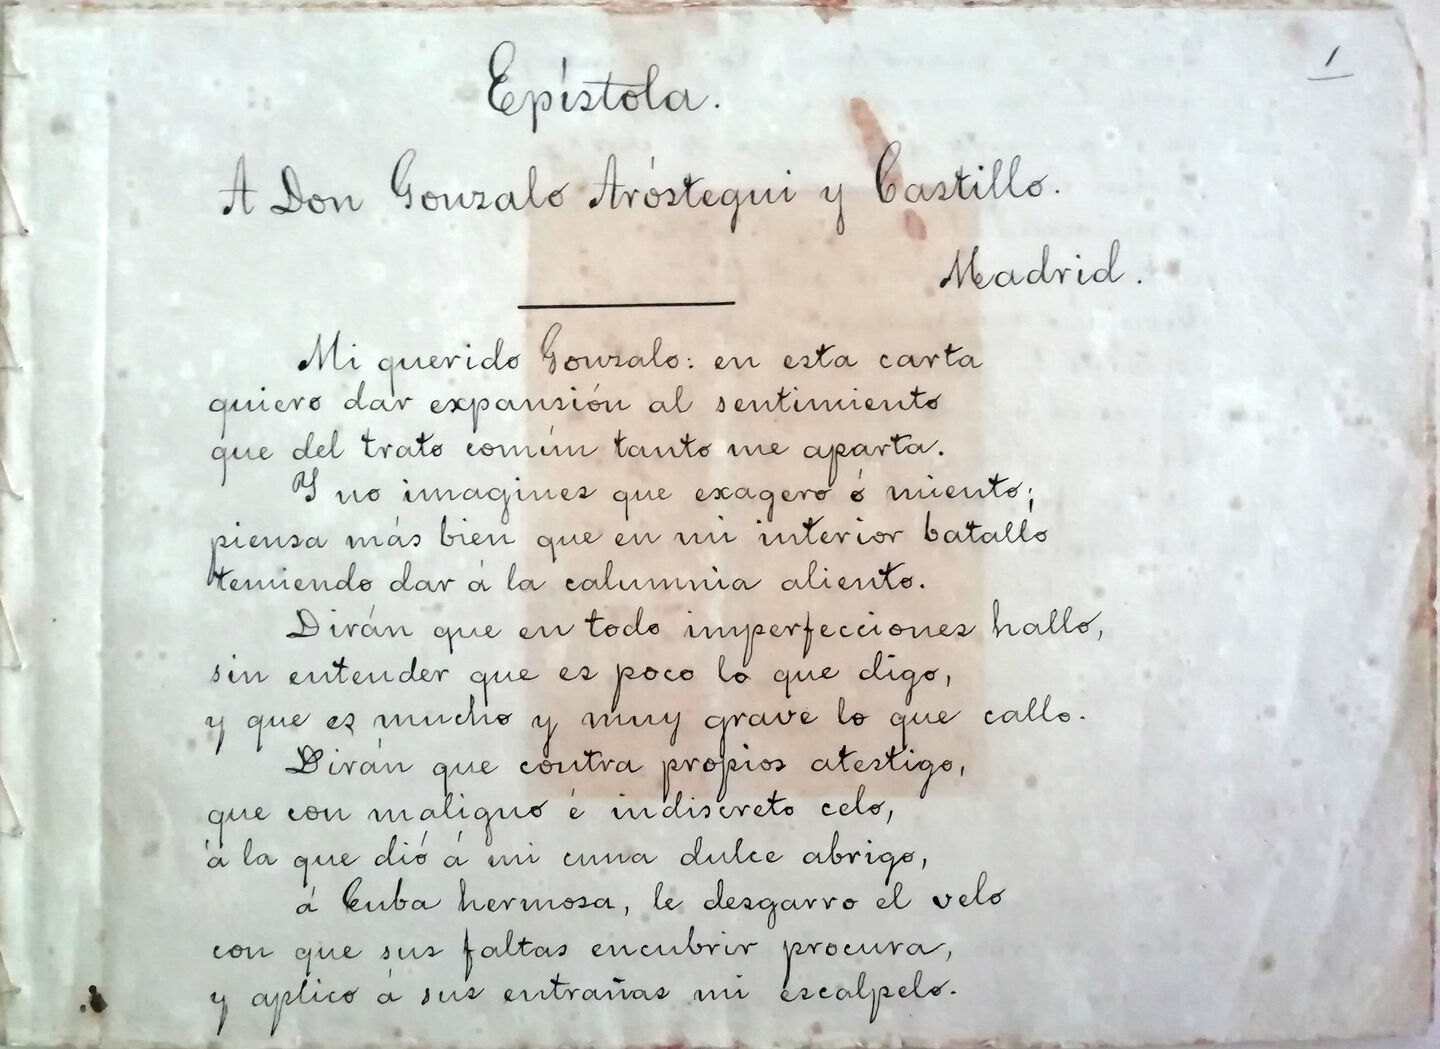 1
Epístola.
A Don Gonzalo Aróstegui y Castillo.
Madrid.
Mi querido Gonzalo: en esta carta
quiero dar expansión al sentimiento
que del trato común tanto me aparta.
Y no imagines que exagero ó miento;
piensa más bien que en mi interior batallo
temiendo dar á la calumnia aliento.
Dirán que en todo imperfecciones hallo,
sin entender que es poco lo que digo,
y que es mucho y muy grave lo que callo.
Dirán que contra propios atestigo,
que con maligno é indiscreto celo,
á la que dió á mi cuna dulce abrigo,
á Cuba hermosa, le desgarro el velo
con que sus faltas encubrir procura,
y aplico á sus entrañas mi escalpelo.